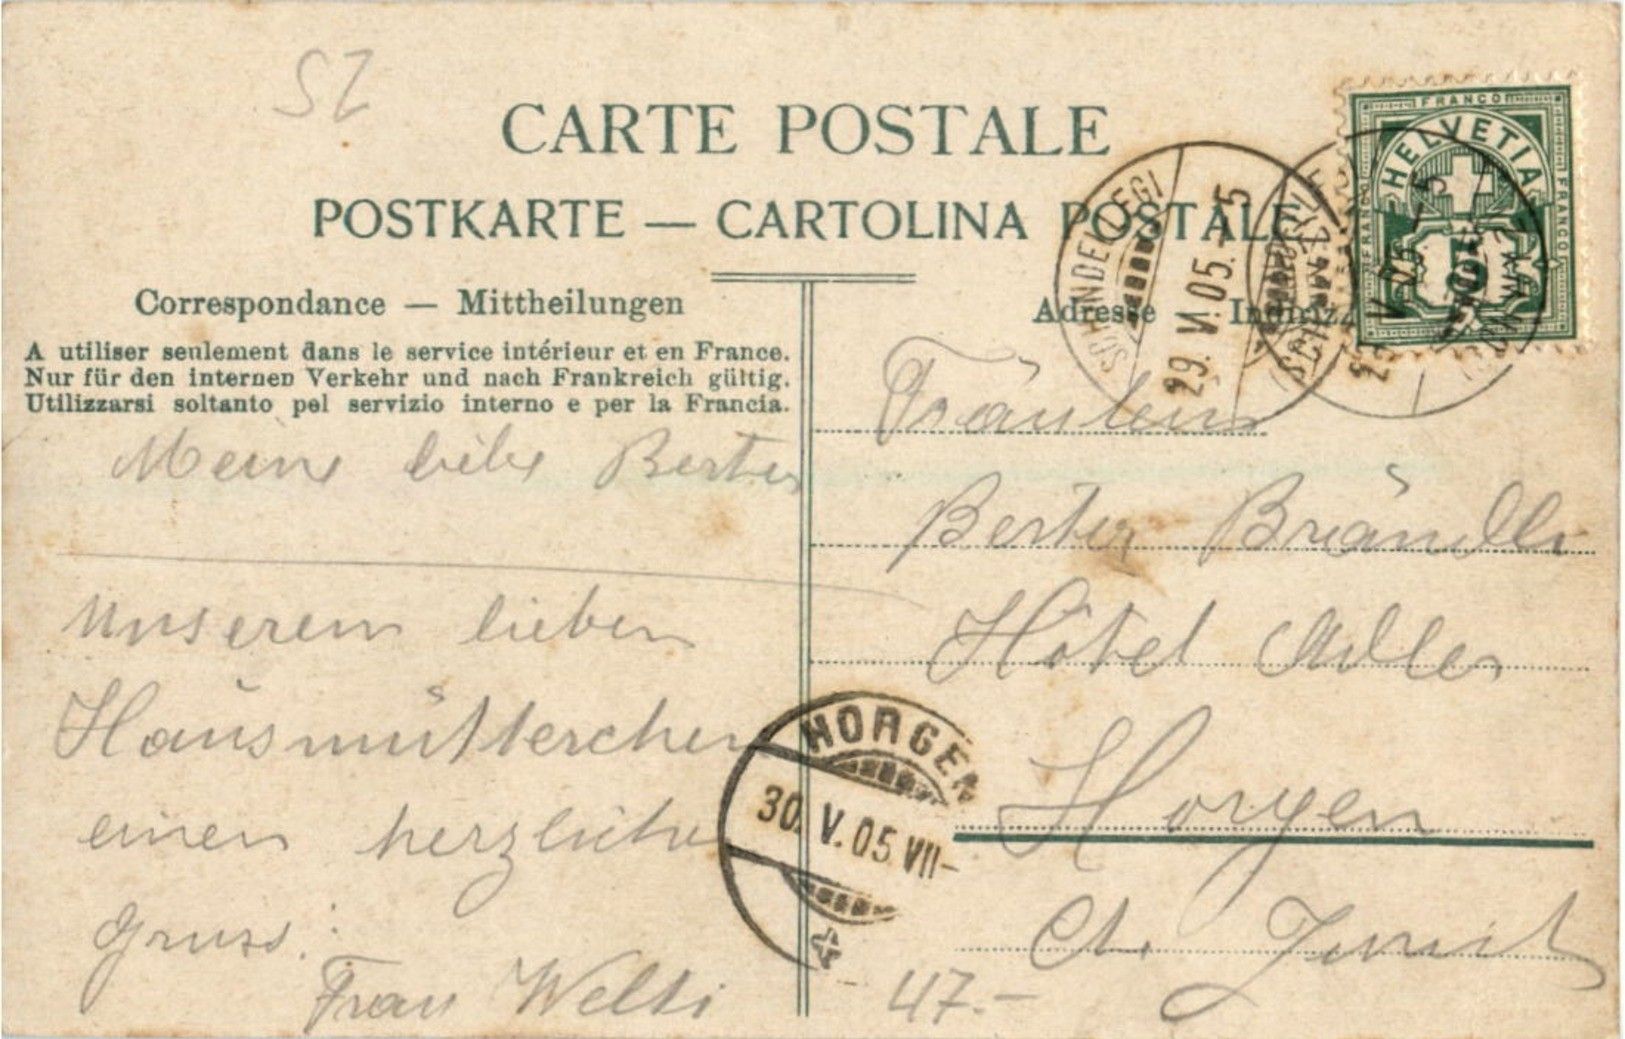 SZ
CARTE POSTALE
POSTKARTE — CARTOLINA POSTALE
Correspondance — Mittheilungen
A utiliser seulement dans le service intérieur et en France.
Nur für den internen Verkehr und nach Frankreich gültig.
Utilizzarsi soltanto pel servizio interno e per la Francia.
Meine liebe Bertha
Unserem lieben
Hausmütterchen
einen herzliche
Gruss.
Frau Welti
Adresse
FRANCO
HELVETIA
FRANCO
FRANCO
5
SCHINDELLEGI
29. VI. 05. – 5
Fräulein
Berta Brändli
Hôtel Adler
Horgen
Ct. Zürich
HORGEN
30. V. 05 VII–
47.–